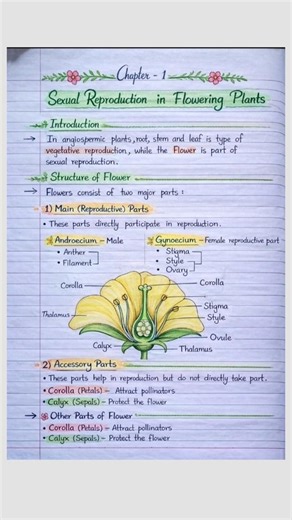 Chapter - 1
Sexual Reproduction in Flowering Plants
Introduction
→ In angiospermic plants, root, stem and leaf is type of
vegetative reproduction, while the Flower is part of
sexual reproduction.
Structure of Flower
→ Flowers consist of two major parts :
1) Main (Reproductive) Parts
• These parts directly participate in reproduction.
Androecium – Male
• Anther
• Filament
Gynoecium – Female reproductive part
• Stigma
• Style
• Ovary
Corolla
Corolla
Thalamus
Stigma
Style
Ovule
Calyx
Thalamus
2) Accessory Parts
• These parts help in reproduction but do not directly take part.
• Corolla (Petals) – Attract pollinators
• Calyx (Sepals) – Protect the flower
→ Other Parts of Flower
• Corolla (Petals) – Attract pollinators
• Calyx (Sepals) – Protect the flower